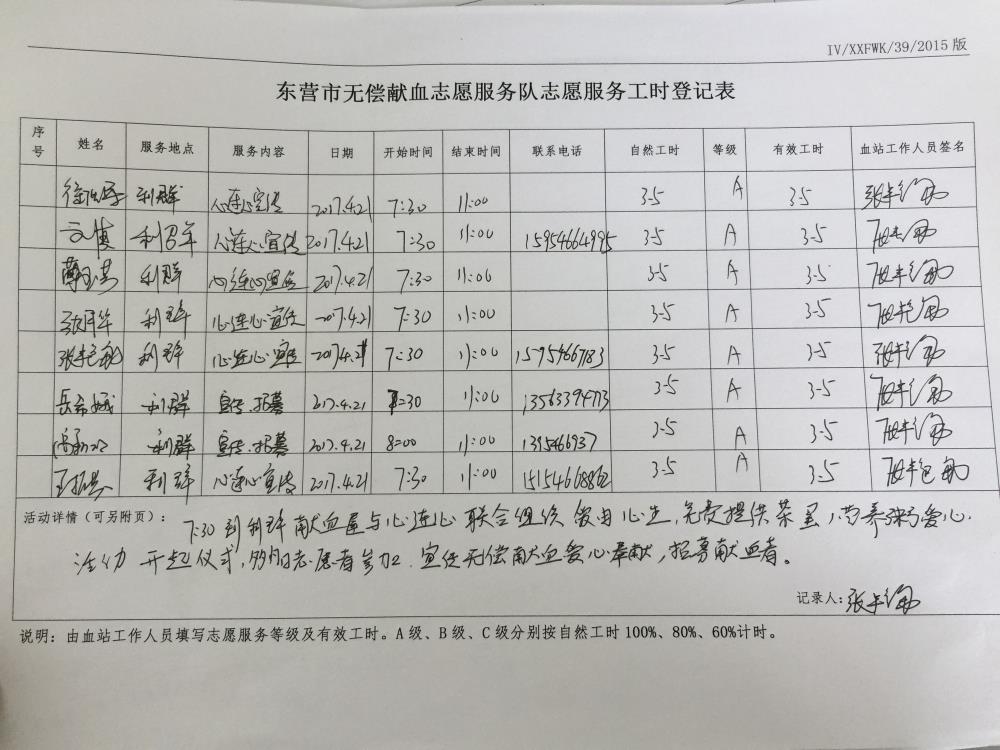 IV/XXFWK/39/2015 版
东营市无偿献血志愿服务队志愿服务工时登记表
序号 姓名 服务地点 服务内容 日期 开始时间 结束时间 联系电话 自然工时 等级 有效工时 血站工作人员签名
利群 心连心宣传 2017.4.21 7:30 11:00 3.5 A 3.5
文博 利群 心连心宣传 2017.4.21 7:30 11:00 15954664995 3.5 A 3.5
利群 心连心宣传 2017.4.21 7:30 11:00 3.5 A 3.5
利群 心连心宣传 2017.4.21 7:30 11:00 3.5 A 3.5
张艳敏 利群 心连心宣传 2017.4.21 7:30 11:00 15954667183 3.5 A 3.5
利群 宣传.招募 2017.4.21 7:30 11:00 13563394773 3.5 A 3.5
利群 宣传.招募 2017.4.21 8:00 11:00 1395466937 3.5 A 3.5
利群 心连心宣传 2017.4.21 7:30 11:00 15154668862 3.5 A 3.5
活动详情（可另附页）： 7:30到利群献血屋与心连心联合组织爱由心生,免费提供
活动开起仪式, 志愿者参加.宣传无偿献血爱心奉献,招募献血者。
记录人:
说明：由血站工作人员填写志愿服务等级及有效工时。A级、B级、C级分别按自然工时100%、80%、60%计时。